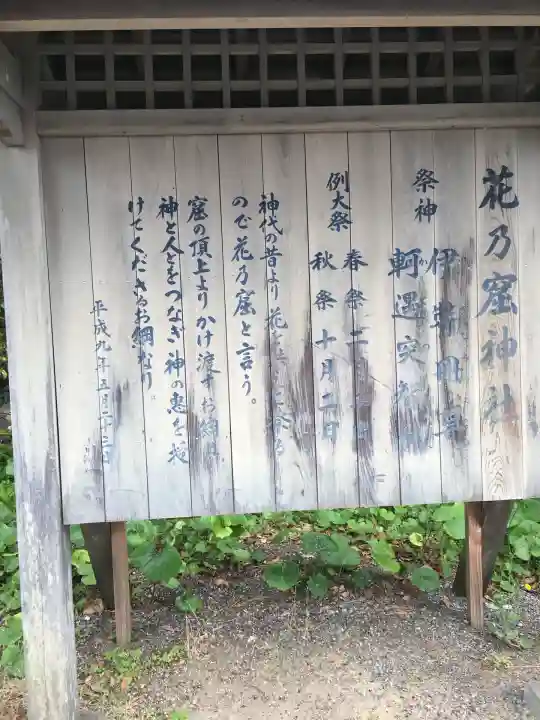 花乃窟神社
祭神
伊弉冊尊
軻遇突智
例大祭
春祭二月
秋祭十月二日
神代の昔より花を 祭る
ので花乃窟と言う。
窟の頂上よりかけ渡すお綱は
神と人とをつなぎ神の恵を授
けてくださるお綱なり
平成九年五月二十三日